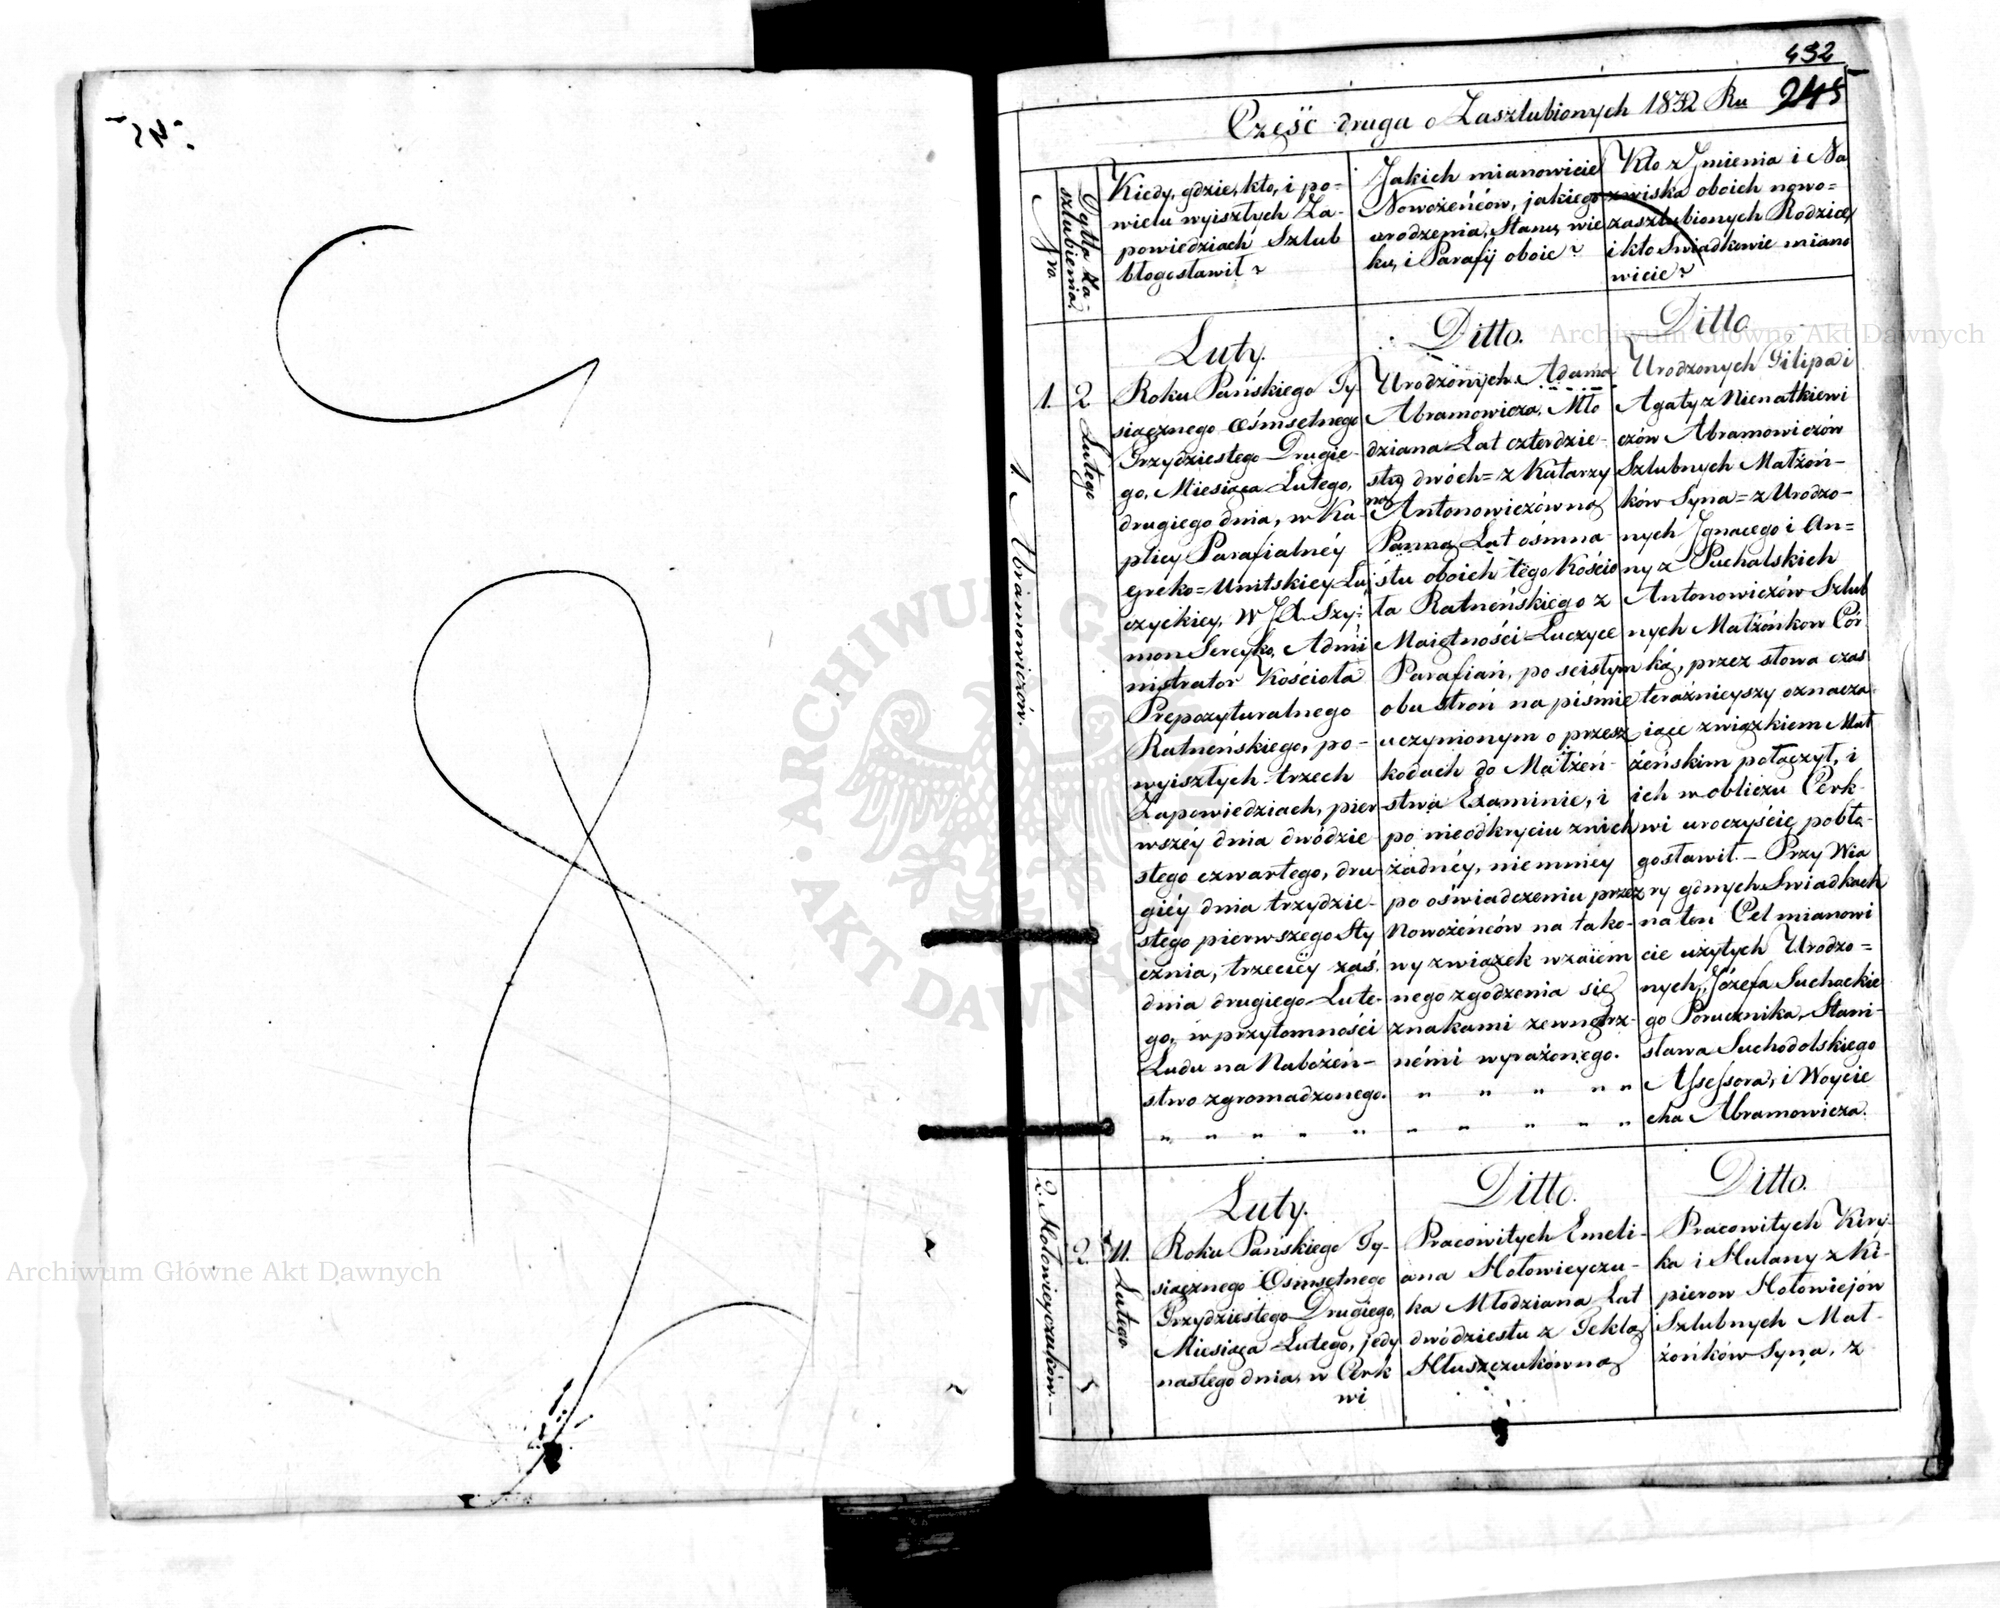 432
245
Część druga o Zaszlubionych 1832 Ru
Nro.
Datta Za-
szlubienia.
Kiedy, gdzie, kto, i po=
wielu wyisztych Za-
powiedziach Szlub
błogosławił?
Jakich mianowicie
Nowożeńców, jakiego
urodzenia, Stanu, wie
ku, i Parafij oboie?
Kto z Jmienia i Na
zwiska oboich nowo=
zaszlubionych Rodzice,
i kto Swiadkowie miano
wicie?
1.
1. Abramowiczów.
2.
Lutego
Luty.
Roku Pańskiego Ty
siącznego Ośmsetnego
Trzydziestego Drugie-
go, Miesiąca Lutego,
drugiego dnia, w Ka-
plicy Parafialnéy
Greko=Unitskiey Łu
czyckiey, W JX. Szy=
mon Sereyko, Admi
nistrator Kościoła
Prepozyturalnego
Ratneńskiego, po-
wyisztych trzech
Zapowiedziach, pier
wszéy dnia dwódzie
stego czwartego, dru-
giéy dnia trzydzie-
stego pierwszego Sty
cznia, trzeciéy zaś,
dnia drugiego Lute-
go, w przytomności
Ludu na Nabożeń-
stwo zgromadzonego.
Ditto.
Urodzonych Adama
Abramowicza, Mło
dziana Lat czterdzie-
stu dwóch= z Katarzy
ną Antonowiczówną
Panną Lat ośmna-
stu oboich tego Kościo
ła Ratneńskiego z
Maiętności Łuczyce
Parafian, po scisłym
obu stron na piśmie
uczynionym o przesz
kodach do Małżeń-
stwa Examinie, i
po nieodkryciu z nich
żadnéy, niemniey
po oświadczeniu przez
Nowożeńców na tako-
wy związek wzaiem
nego zgodzenia się
znakami zewnętrz-
némi wyrażonego.
Ditto
Urodzonych Filipa i
Agaty z Nienałkiewi
czów Abramowiczów
Szlubnych Małżon-
ków Syna= z Urodzo-
nych Jgnacego i An=
ny z Puchalskich
Antonowiczów Szlub
nych Małżonkow Cór
ką, przez słowa czas
teraźnieyszy oznacza-
iące związkiem Mał
żeńskim połączył, i
ich w obliczu Cerk-
wi uroczyście pobło-
gosławił.- Przy Wia
ry godnych Swiadkach
na ten Cel mianowi
cie użytych Urodzo=
nych, Józefa Suchockie
go Porucznika, Stani-
sława Suchodolskiego
Assessora, i Woycie
cha Abramowicza.
2.
2. Hołowieyczuków.-
11.
Lutego.
Luty.
Roku Pańskiego Ty-
siącznego Osmsetnego
Trzydziestego Drugiego,
Miesiąca Lutego, jedy
nastego dnia, w Cerk
wi
Ditto.
Pracowitych Emeli-
ana Hołowieyczu-
ka Młodziana Lat
dwódziestu z Teklą
Hłuszczukówną
Ditto.
Pracowitych Kiry-
ka i Hulany z Ki-
pierow Hołowiejów
Szlubnych Mał-
żonków Syna, z
Archiwum Główne Akt Dawnych
Archiwum Główne Akt Dawnych
ARCHIWUM GŁÓWNE AKT DAWNYCH